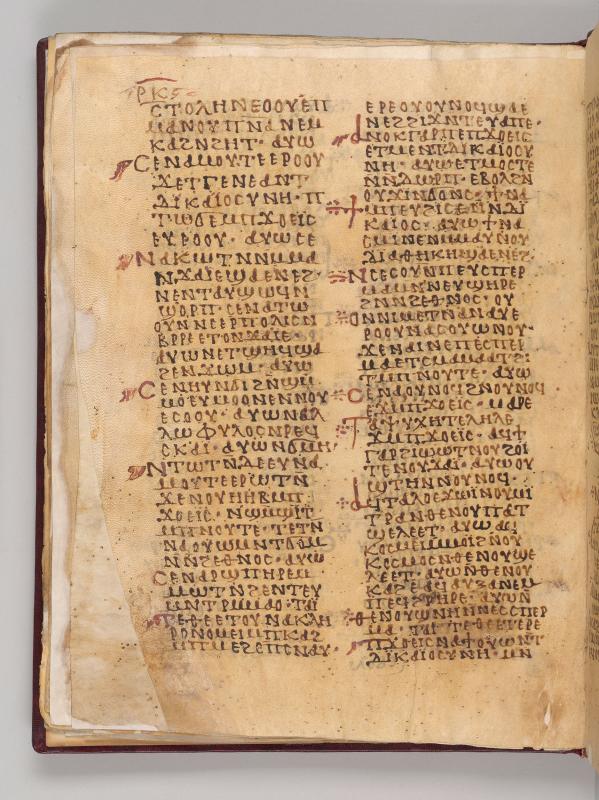 ⲣⲕⲋ
ⲥⲧⲟⲗⲏⲛⲉⲟⲟⲩⲉⲡ
ⲙⲁⲛⲟⲩⲡⲛⲁⲛⲉⲙ
ⲕⲁϩⲛϩⲏⲧ· ⲁⲩⲱ
ⲥⲉⲛⲁⲙⲟⲩⲧⲉⲉⲣⲟⲟⲩ
ϫⲉⲧⲅⲉⲛⲉⲁⲛⲧ
ⲇⲓⲕⲁⲓⲟⲥⲩⲛⲏ· ⲡ
ⲧⲱϭⲉⲙⲡϫⲟⲉⲓⲥ
ⲉⲩⲉⲟⲟⲩ· ⲁⲩⲱⲥⲉ
ⲛⲁⲕⲱⲧⲛⲛⲙⲙⲁ
ⲛϫⲁⲓⲉϣⲁⲉⲛⲉϩ·
ⲛⲉⲛⲧⲁⲩϣⲱϥⲛ
ϣⲟⲣⲡ· ⲥⲉⲛⲁⲧⲱ
ⲟⲩⲛⲛⲥⲉⲣⲡⲟⲗⲓⲥⲛ
ⲃⲣⲣⲉⲉⲧⲟⲛϫⲁⲓⲉ·
ⲁⲩⲱⲛⲉⲧϣⲏϥϣⲁ
ϩⲉⲛϫⲱⲙ· ⲁⲩⲱ
ⲥⲉⲛⲏⲩⲛϭⲓϩⲛϣⲙ
ⲙⲟⲉⲩⲙⲟⲟⲛⲉⲛⲛⲟⲩ
ⲉⲥⲟⲟⲩ· ⲁⲩⲱⲛⲁⲗ
ⲗⲱⲫⲩⲗⲟⲥⲛⲣⲉϥ
ⲥⲕⲁⲓ· ⲁⲩⲱⲛϭⲙⲏ·
ⲛⲧⲱⲧⲛⲇⲉⲉⲩⲛⲁ
ⲙⲟⲩⲧⲉⲉⲣⲱⲧⲛ
ϫⲉⲛⲟⲩⲏⲏⲃⲙⲡ
ϫⲟⲉⲓⲥ· ⲛϣⲙϣⲓⲧ
ⲙⲡⲛⲟⲩⲧⲉ· ⲧⲉⲧⲛ
ⲛⲁⲟⲩⲱⲙⲛⲧϭⲟⲙ
ⲛⲛϩⲉⲑⲛⲟⲥ· ⲁⲩⲱ
ⲥⲉⲛⲁⲣϣⲡⲏⲣⲉⲙ
ⲙⲱⲧⲛϩⲛⲧⲉⲩ
ⲙⲛⲧⲣⲙⲙⲁⲟ· ⲧⲁⲓ
ⲧⲉⲑⲉⲉⲧⲟⲩⲛⲁⲕⲗⲏ
ⲣⲟⲛⲟⲙⲉⲓⲙⲡⲕⲁϩ
ⲙⲡⲙⲉϩⲥⲉⲡⲥⲛⲁⲩ·
ⲉⲣⲉⲟⲩⲟⲩⲛⲟϥϣⲁⲉ
ⲛⲉϩϩⲓϫⲛⲧⲉⲩⲁⲡⲉ·
ⲁⲛⲟⲕⲅⲁⲣⲡⲉⲡϫⲟⲉⲓⲥ
ⲉⲧⲙⲉⲛⲧⲇⲓⲕⲁⲓⲟⲥⲩ
ⲛⲏ· ⲁⲩⲱⲉⲧⲙⲟⲥⲧⲉ
ⲛⲛⲧⲱⲣⲡ· ⲉⲃⲟⲗϩⲛ
ⲟⲩϫⲓⲛϭⲟⲛⲥ· ϯⲛⲁ
ⲙⲡⲉⲩϩⲓⲥⲉⲛⲛⲇⲓ
ⲕⲁⲓⲟⲥ· ⲁⲩⲱϯⲛⲁ
ⲥⲙⲓⲛⲉⲛⲙⲙⲁⲩⲛⲟⲩ
ⲇⲓⲁⲑⲏⲕⲏϣⲁⲉⲛⲉϩ·
ⲛⲥⲉⲥⲟⲩⲛⲡⲉⲩⲥⲡⲉⲣ
ⲙⲁⲙⲛⲛⲉⲩϣⲏⲣⲉ
ϩⲛⲛϩⲉⲑⲛⲟⲥ· ⲟⲩ
ⲟⲛⲛⲓⲙⲉⲧⲛⲁⲛⲁⲩⲉ
ⲣⲟⲟⲩⲛⲁⲥⲟⲩⲱⲛⲟⲩ·
ϫⲉⲛⲁⲓⲛⲉⲡⲉⲥⲡⲉⲣ
ⲙⲁⲉⲧⲥⲙⲁⲙⲁⲁⲧϩⲓ
ⲧⲙⲡⲛⲟⲩⲧⲉ· ⲁⲩⲱ
ⲥⲉⲛⲁⲟⲩⲛⲟϥϩⲛⲟⲩⲛⲟϥ
ⲉϫⲙⲡϫⲟⲉⲓⲥ· ⲙⲁⲣⲉ
ⲧⲁⲯⲩⲭⲏⲧⲉⲗⲏⲗⲉ
ϫⲙⲡϫⲟⲉⲓⲥ· ⲁϥϯ
ⲅⲁⲣϩⲓⲱⲱⲧⲛⲟⲩϩⲟⲓ
ⲧⲉⲛⲟⲩϫⲁⲓ· ⲁⲩⲱⲟⲩ
ϣⲧⲏⲛⲛⲟⲩⲛⲟϥ·
ⲁϥⲧⲁⲗⲟⲉϫⲱⲓⲛⲟⲩⲙⲓ
ⲧⲣⲁⲛⲑⲉⲛⲟⲩⲡⲁⲧ
ϣⲉⲗⲉⲉⲧ· ⲁⲩⲱⲁϥ
ⲕⲟⲥⲙⲉⲓⲙⲙⲟⲓϩⲛⲟⲩ
ⲕⲟⲥⲙⲟⲥⲛⲑⲉⲛⲟⲩϣⲉ
ⲗⲉⲉⲧ· ⲁⲩⲱⲛⲑⲉⲛⲟⲩ
ⲕⲁϩⲉⲁϥⲁⲩⲝⲁⲛⲉⲙ
ⲡⲉϥϩⲣⲏⲣⲉ· ⲁⲩⲱⲛ
ⲑⲉⲛⲟⲩϣⲛⲏⲛⲛⲉⲥⲥⲡⲉⲣ
ⲙⲁ· ⲧⲁⲓⲧⲉⲑⲉⲉⲧⲉⲣⲉ
ⲡϫⲟⲉⲓⲥⲛⲁϯⲟⲩⲱⲛⲧ
ⲇⲓⲕⲁⲓⲟⲥⲩⲛⲏ· ⲙⲛ